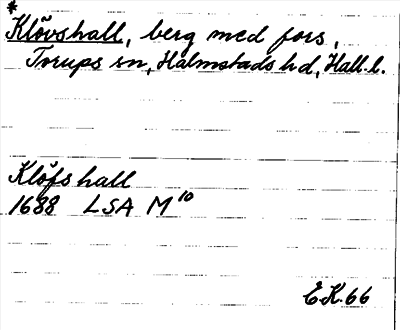 *
Klövshall, berg med fors,
Torups sn, Halmstads hd, Hall. l.
Klöfshall
1688 LSA M¹⁰
E.K. 66